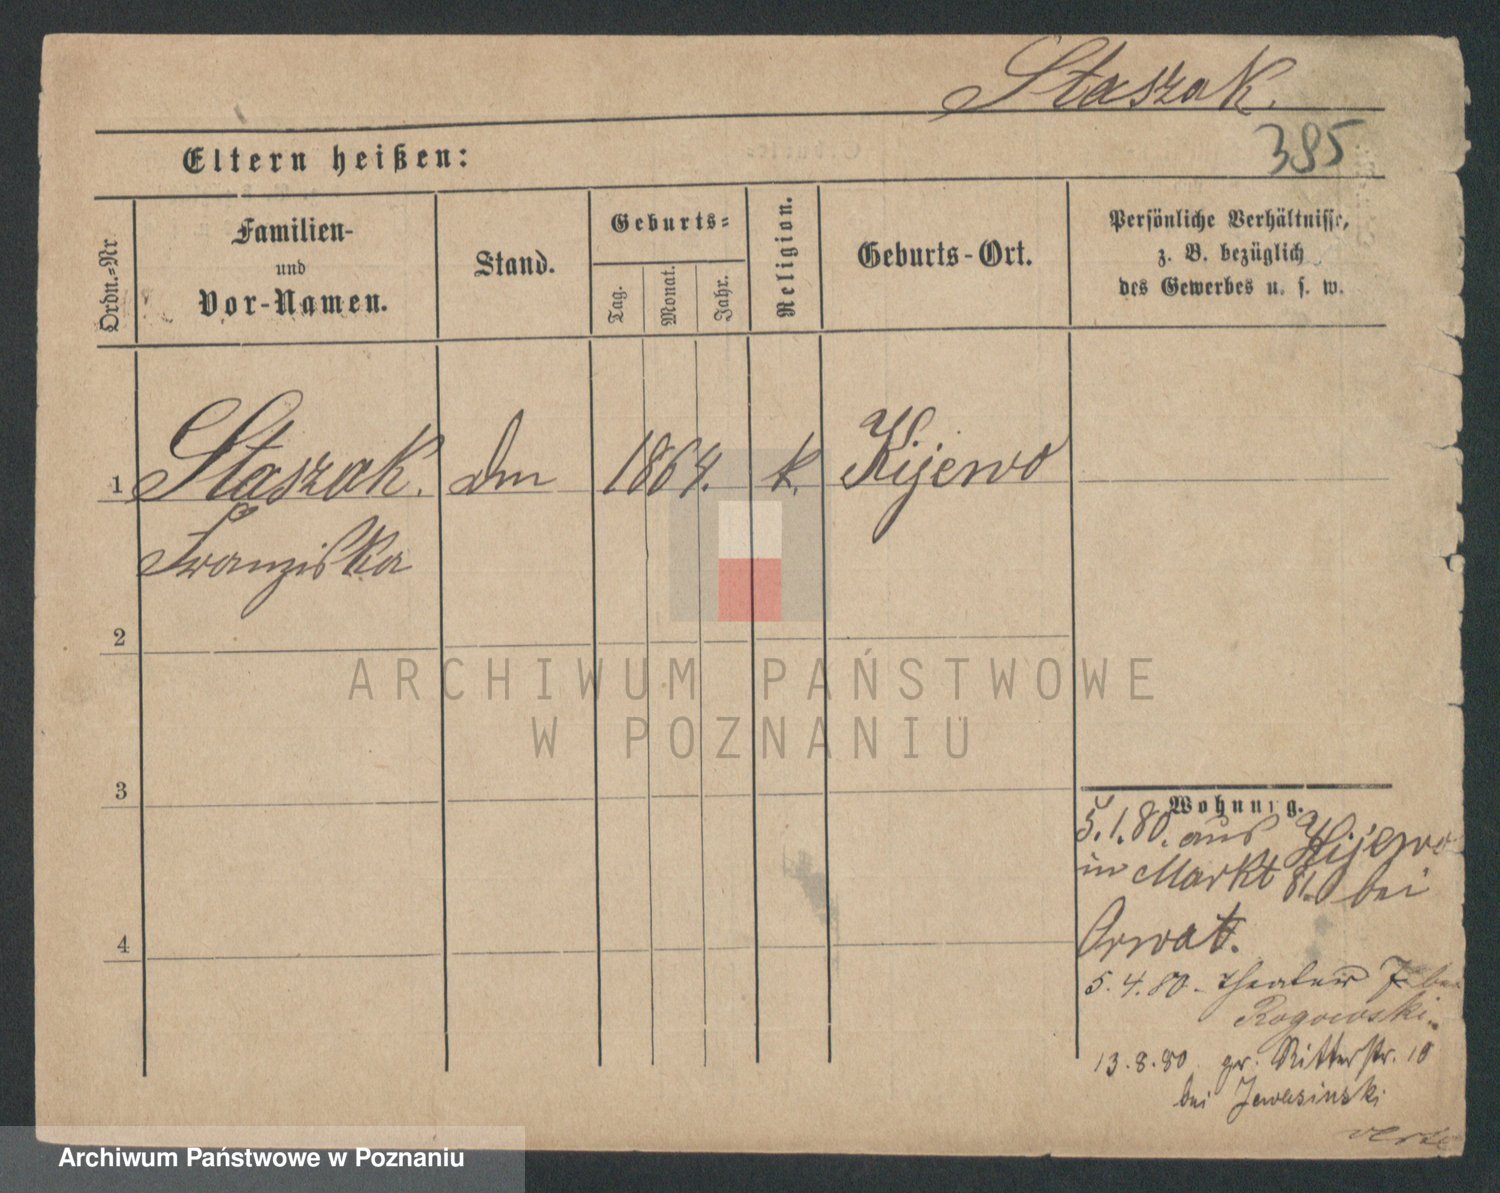 Staszak.
395
Eltern heißen:
Ordn.=Nr
Familien-
und
Vor-Namen.
Stand.
Geburts=
Tag.
Monat.
Jahr.
Religion.
Geburts-Ort.
Persönliche Verhältnisse,
z. B. bezüglich
des Gewerbes u. s. w.
1 Staszak. 1864. k. Kijewo
Franziska
2
3
4
Wohnung.
5.1.80. aus Kijewo
in Markt 81. bei
Orwat.
5.4.80 - Theaterstr 7 bei
Rogowski.
13.8.80 gr. Ritterstr. 10
bei
ARCHIWUM PAŃSTWOWE
W POZNANIU
Archiwum Państwowe w Poznaniu